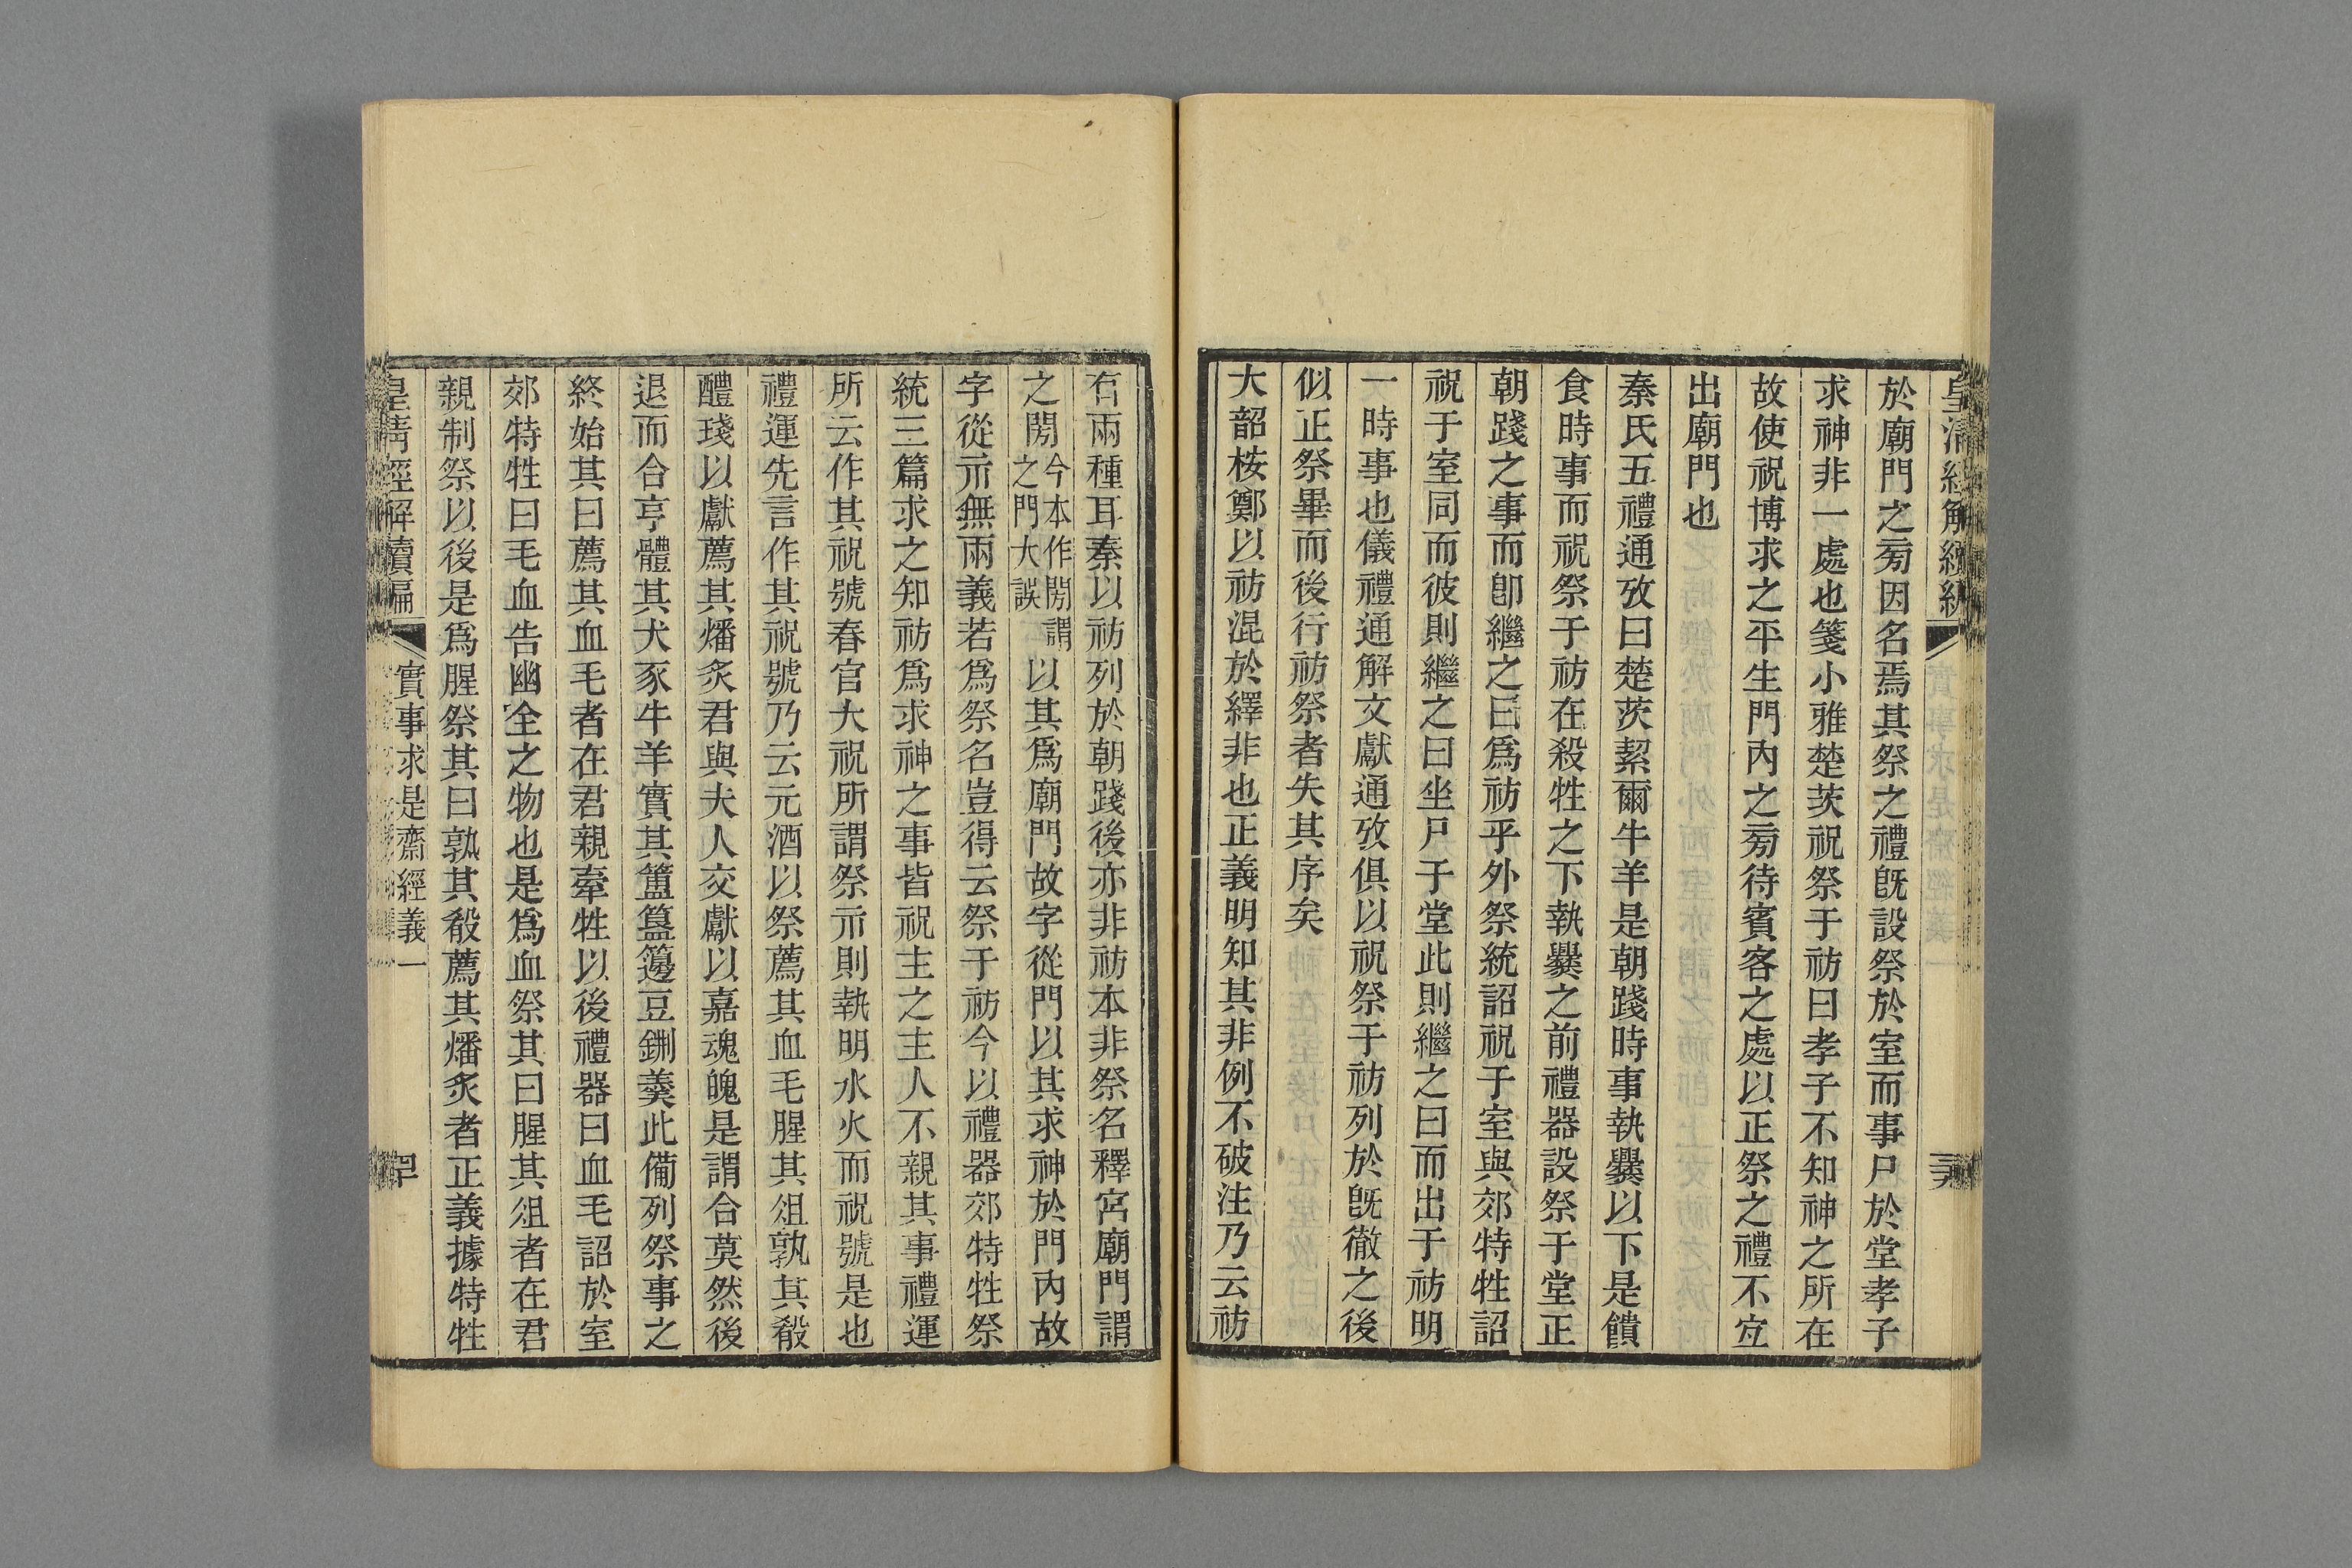 於廟門之旁因名焉其祭之禮旣設祭於室而事尸於堂孝子
求神非一處也箋小雅楚茨祝祭于祊曰孝子不知神之所在
故使祝博求之平生門內之旁待賓客之處以正祭之禮不宜
出廟門也
秦氏五禮通攷曰楚茨絜爾牛羊是朝踐時事執爨以下是饋
食時事而祝祭于祊在殺牲之下執爨之前禮器設祭于堂正
朝踐之事而卽繼之曰爲祊乎外祭統詔祝于室與郊特牲詔
祝于室同而彼則繼之曰坐尸于堂此則繼之曰而出于祊明
一時事也儀禮通解文獻通攷俱以祝祭于祊列於旣徹之後
似正祭畢而後行祊祭者失其序矣
大韶桉鄭以祊混於繹非也正義明知其非例不破注乃云祊
有兩種耳秦以祊列於朝踐後亦非祊本非祭名釋宮廟門謂
之閍今本作閍謂之門大誤以其爲廟門故字從門以其求神於門內故
字從示無兩義若爲祭名豈得云祭于祊今以禮器郊特牲祭
統三篇求之知祊爲求神之事皆祝主之主人不親其事禮運
所云作其祝號春官大祝所謂祭示則執明水火而祝號是也
禮運先言作其祝號乃云元酒以祭薦其血毛腥其俎孰其殽
醴琖以獻薦其燔炙君與夫人交獻以嘉魂魄是謂合莫然後
退而合亨體其犬豕牛羊實其簠簋籩豆鉶羹此備列祭事之
終始其曰薦其血毛者在君親牽牲以後禮器曰血毛詔於室
郊特牲曰毛血告幽全之物也是爲血祭其曰腥其俎者在君
親制祭以後是爲腥祭其曰孰其殽薦其燔炙者正義據特牲
皇淸經解續編
實事求是齋經義一